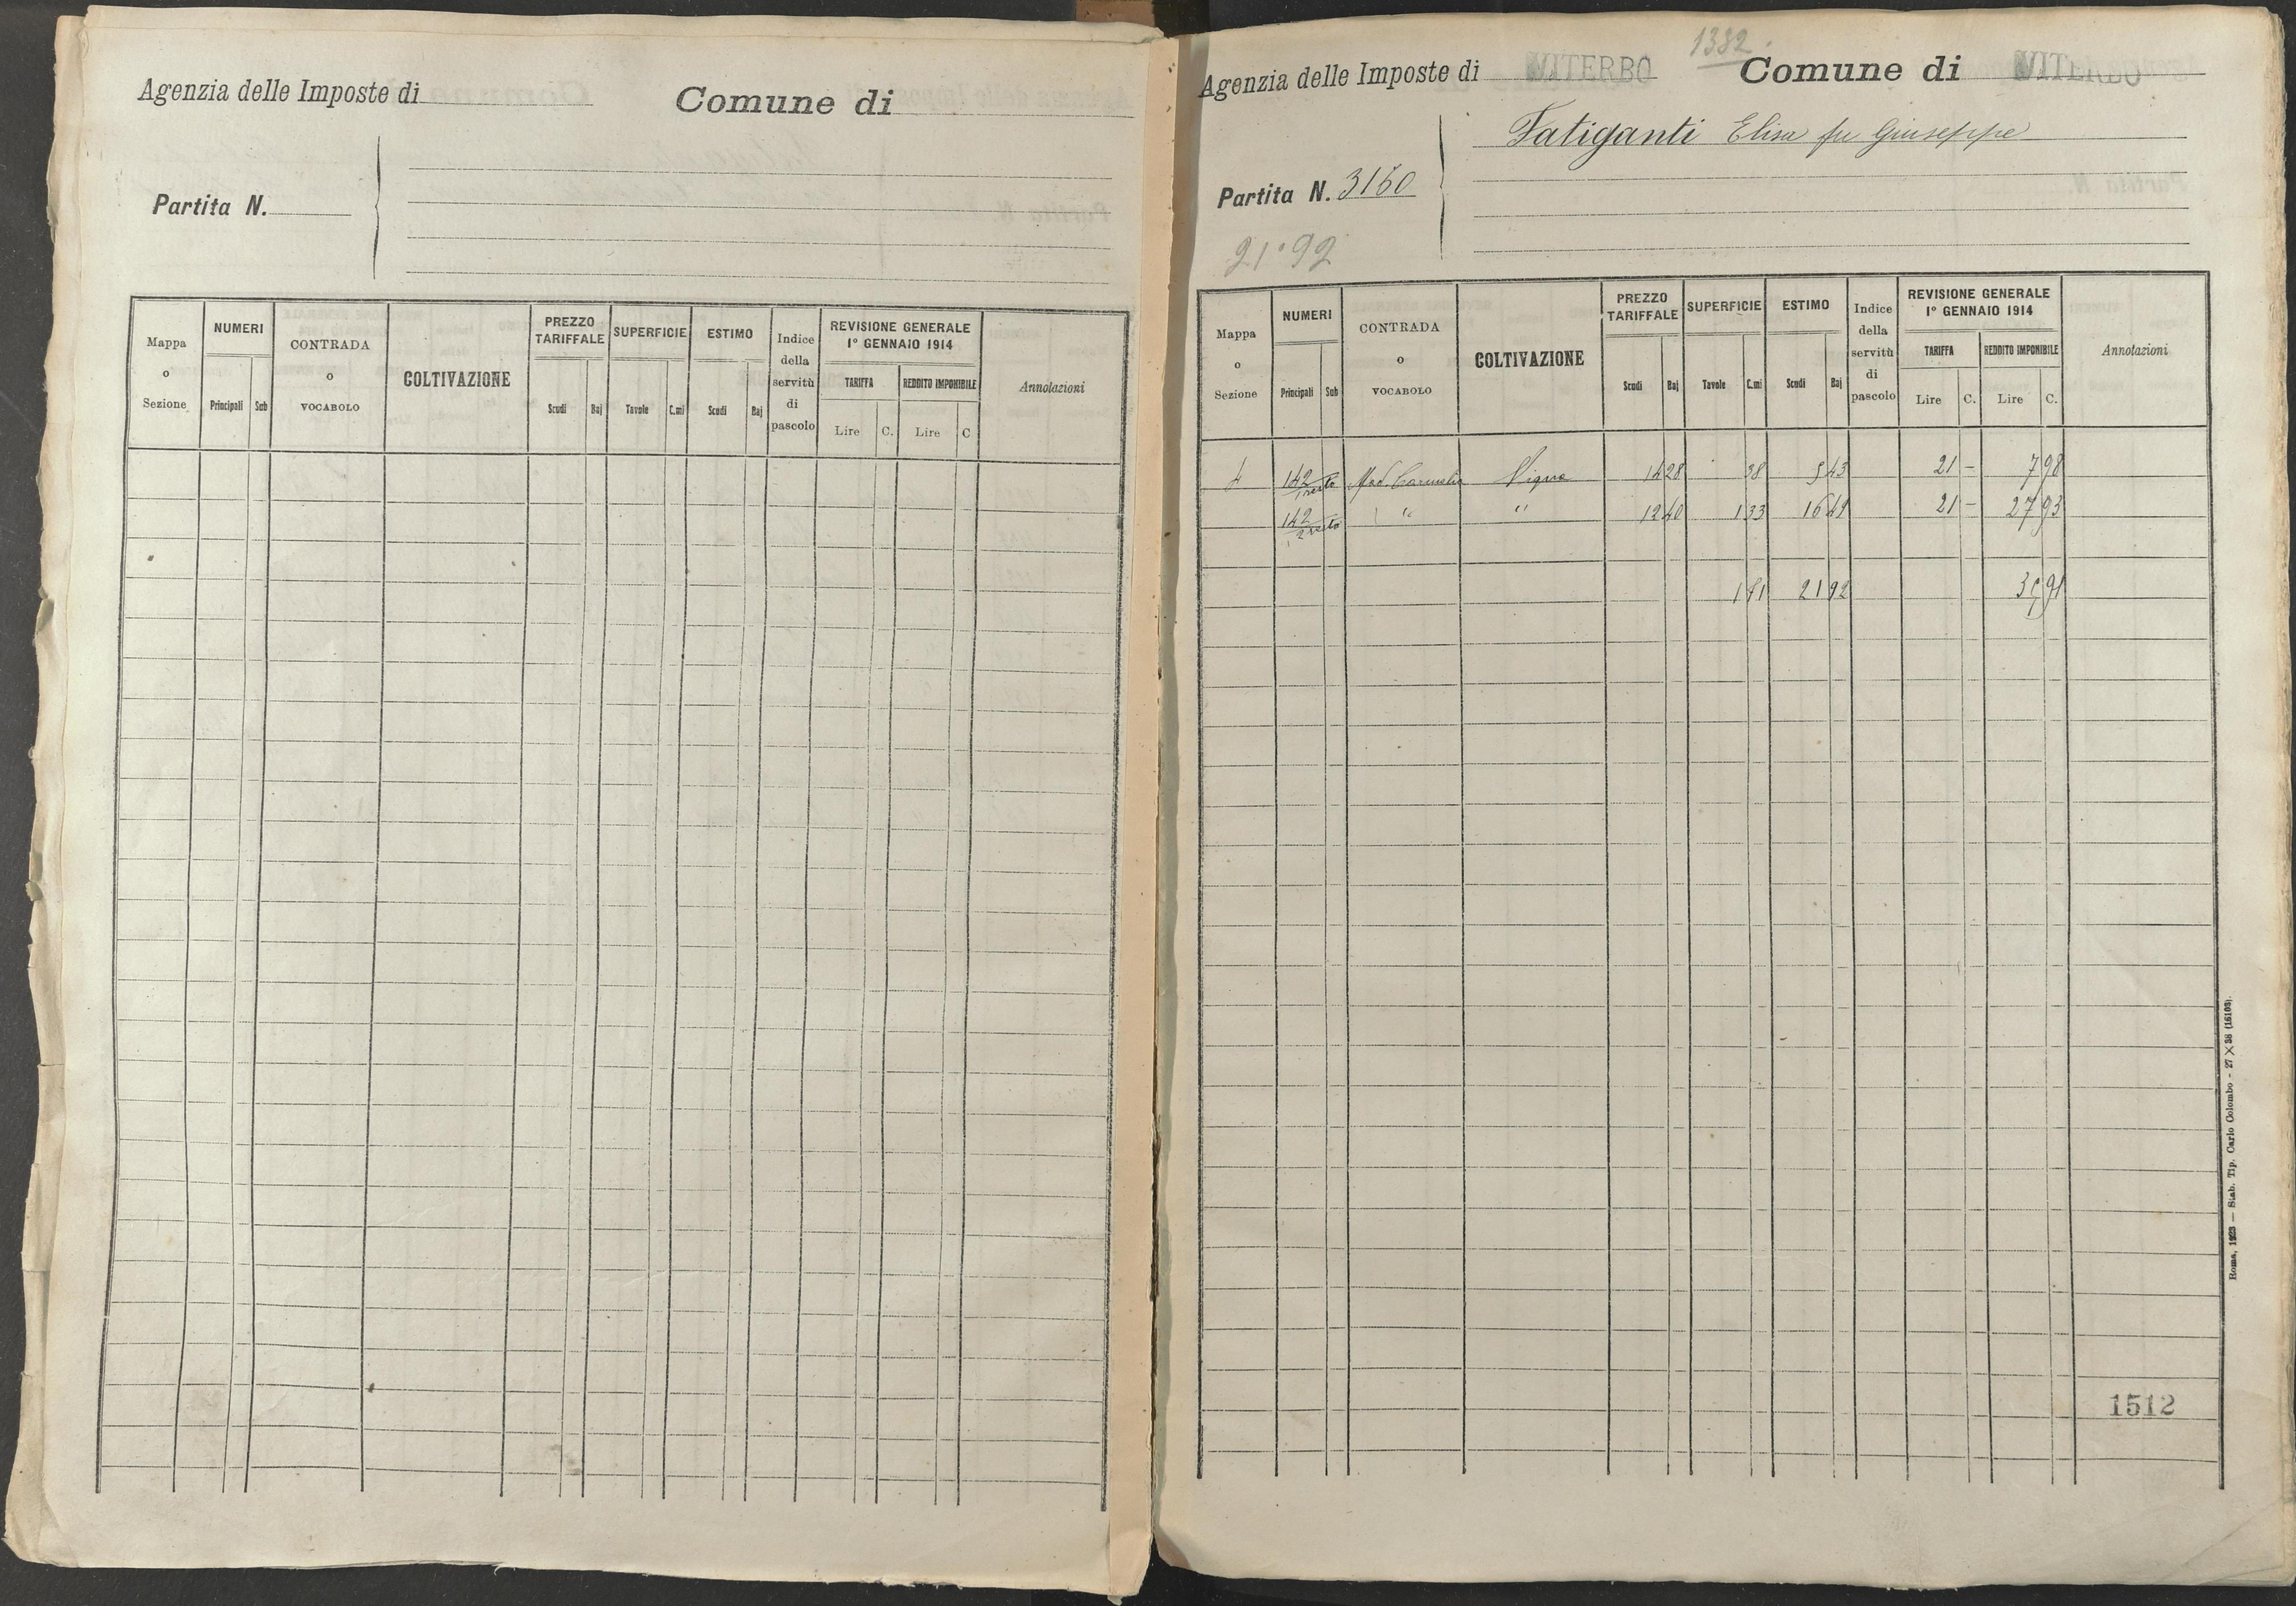 Agenzia delle Imposte di
Comune di
Partita N.
Mappa o Sezione
NUMERI
Principali
Sub
CONTRADA o VOCABOLO
COLTIVAZIONE
PREZZO TARIFFALE
Scudi
Baj
SUPERFICIE
Tavole
C.mi
ESTIMO
Scudi
Baj
Indice della servitù di pascolo
REVISIONE GENERALE
1º GENNAIO 1914
TARIFFA
REDDITO IMPONIBILE
Lire
C.
Lire
C
Annotazioni
1382.
Agenzia delle Imposte di VITERBO
Comune di VITERBO
Fatiganti Elisa fu Giuseppe
Partita N. 3160
21.92
Mappa o Sezione
NUMERI
Principali
Sub
CONTRADA o VOCABOLO
COLTIVAZIONE
PREZZO TARIFFALE
Scudi
Baj
SUPERFICIE
Tavole
C.mi
ESTIMO
Scudi
Baj
Indice della servitù di pascolo
REVISIONE GENERALE
1º GENNAIO 1914
TARIFFA
REDDITO IMPONIBILE
Lire
C.
Lire
C.
Annotazioni
4 142/1 resto Mad. Vigna 14 28 38 5 43 21 — 7 98
142/2 resto " " 12 40 1 33 16 49 21 — 27 93
1 71 21 92 35 91
Roma, 1923 — Stab. Tip. Carlo Colombo - 27 X 38 (15103).
1512